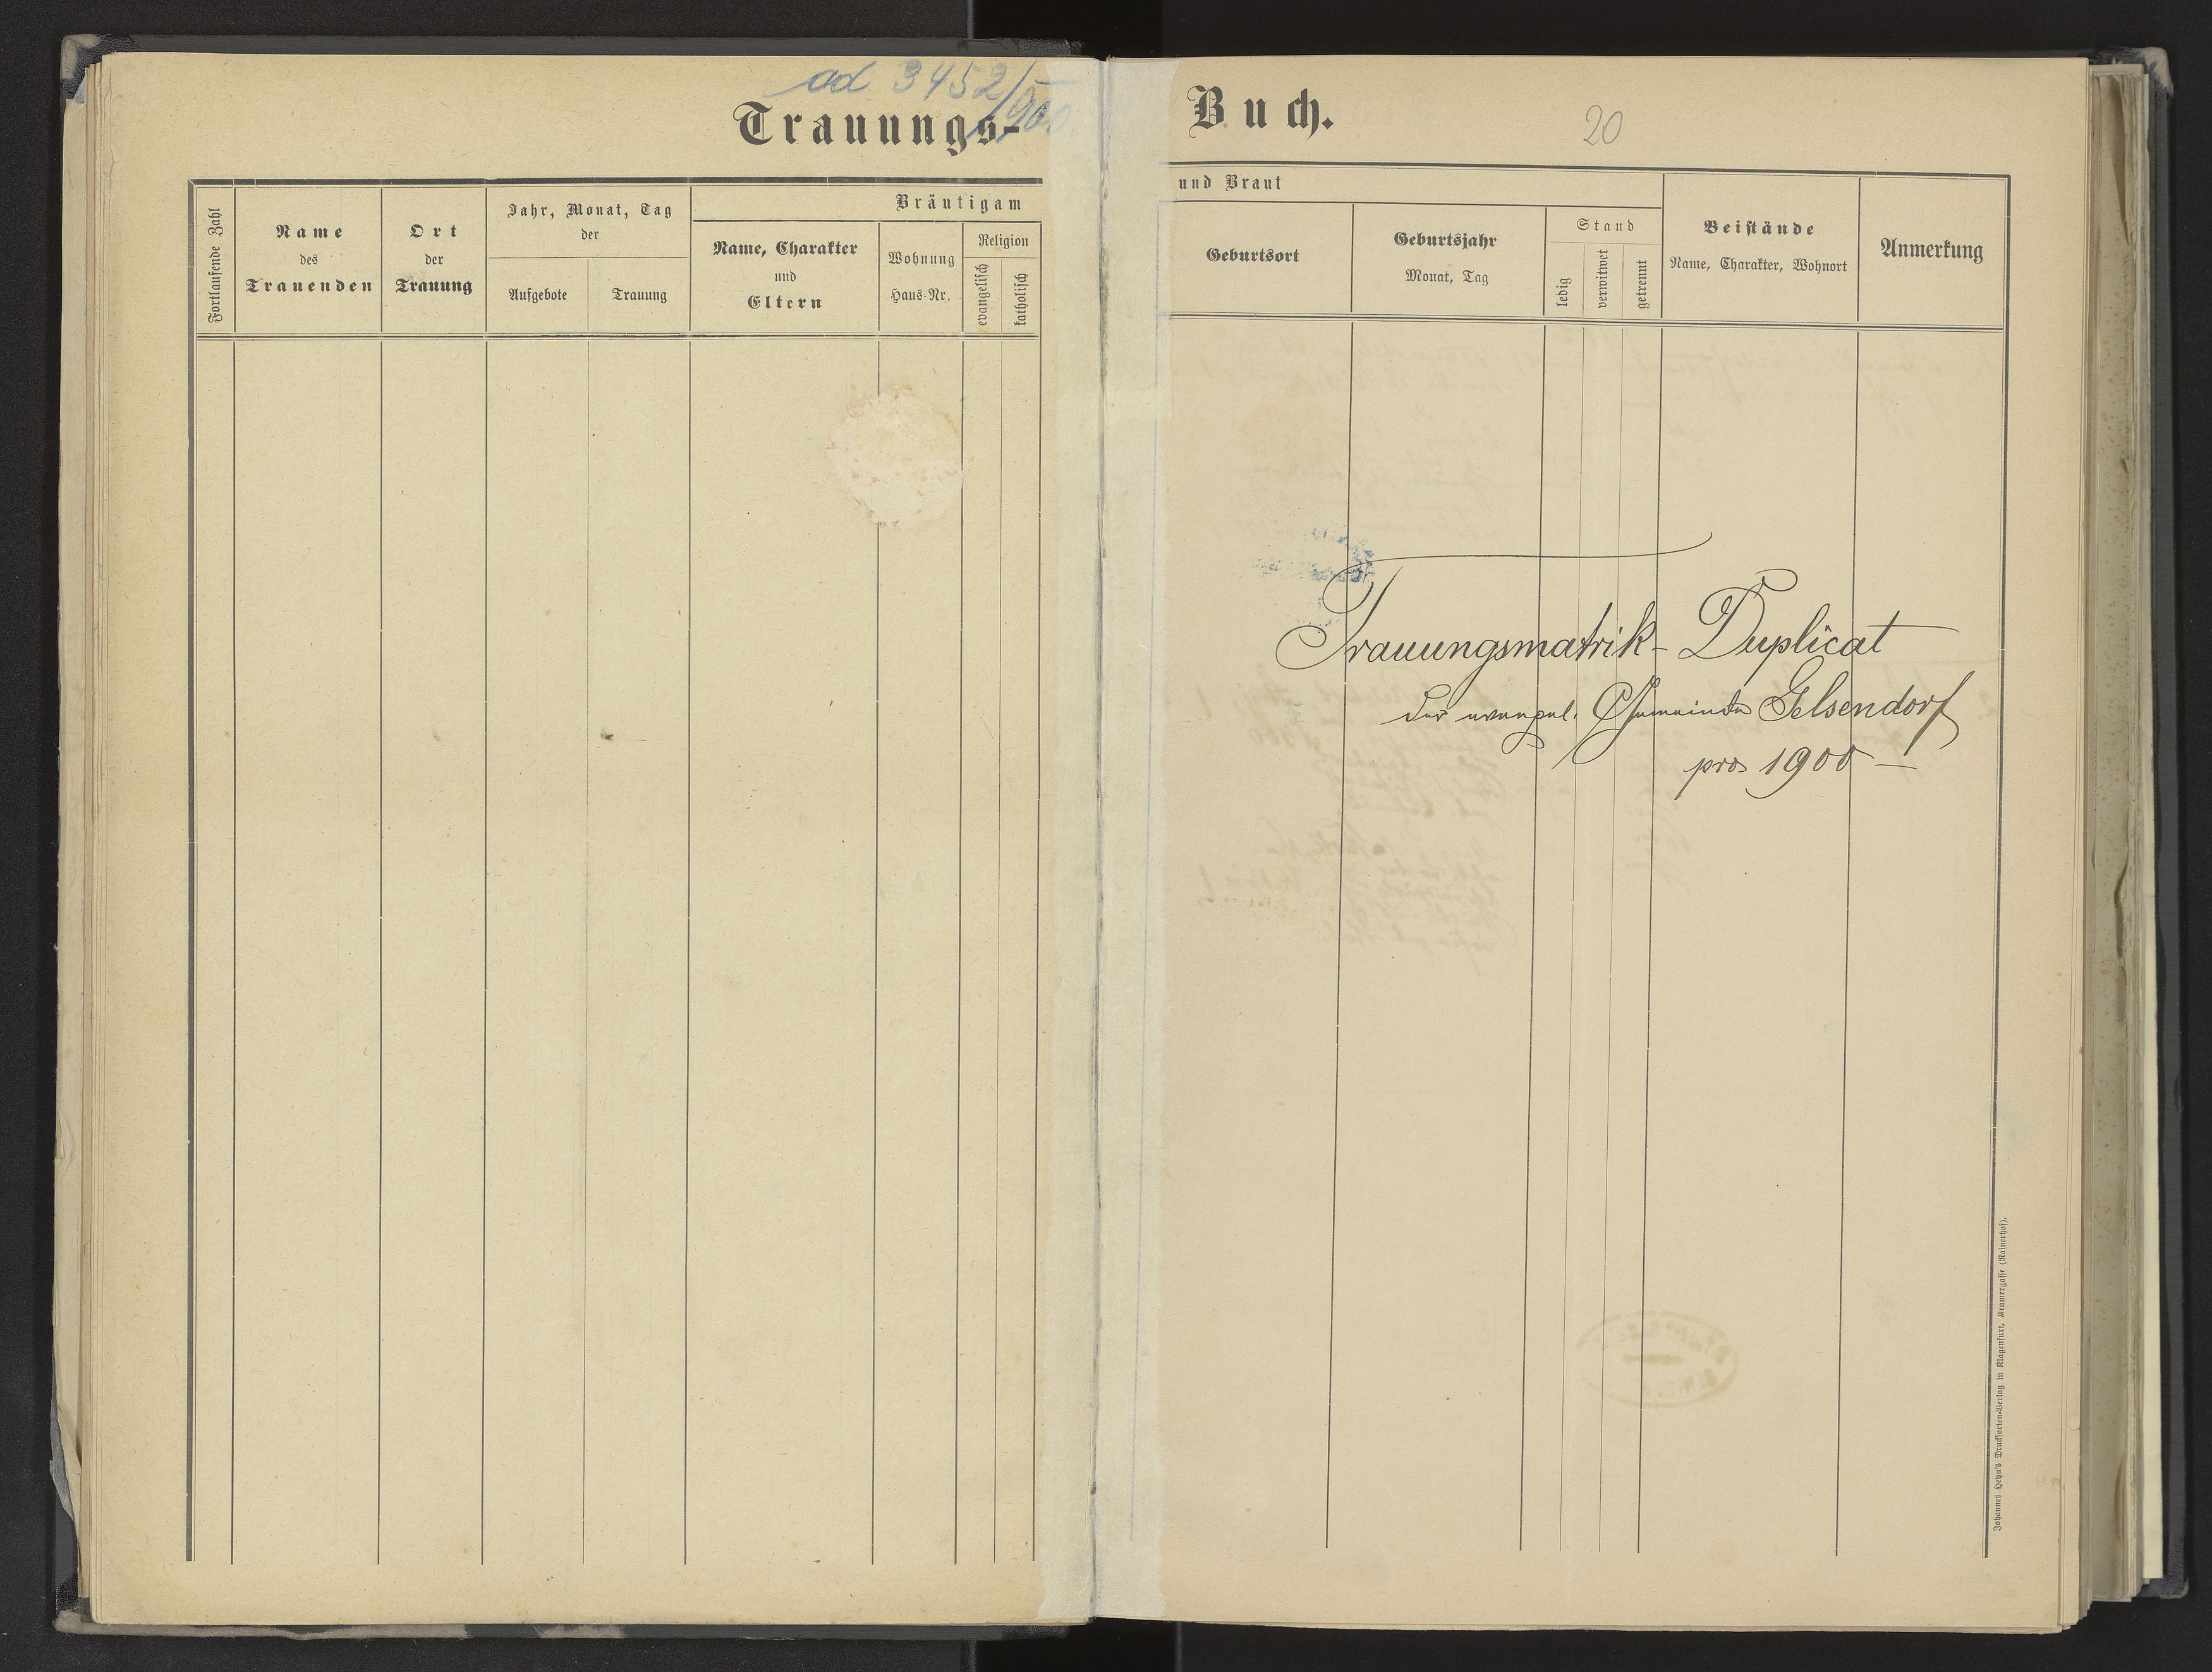 ad 3452/900.
Trauungs-
Buch.
20
Fortlaufende Zahl
Name
des
Trauenden
Ort
der
Trauung
Jahr, Monat, Tag
der
Aufgebote
Trauung
Bräutigam
und Braut
Name, Charakter
und
Eltern
Wohnung
Haus-Nr.
Religion
evangelisch
katholisch
Geburtsort
Geburtsjahr
Monat, Tag
Stand
ledig
verwitwet
getrennt
Beistände
Name, Charakter, Wohnort
Anmerkung
Trauungsmatrik-Duplicat
der evangel. Gemeinde Gelsendorf
pro 1900
Johannes Heyn's Drucksorten-Verlag in Klagenfurt, Kramergasse (Rainerhof).